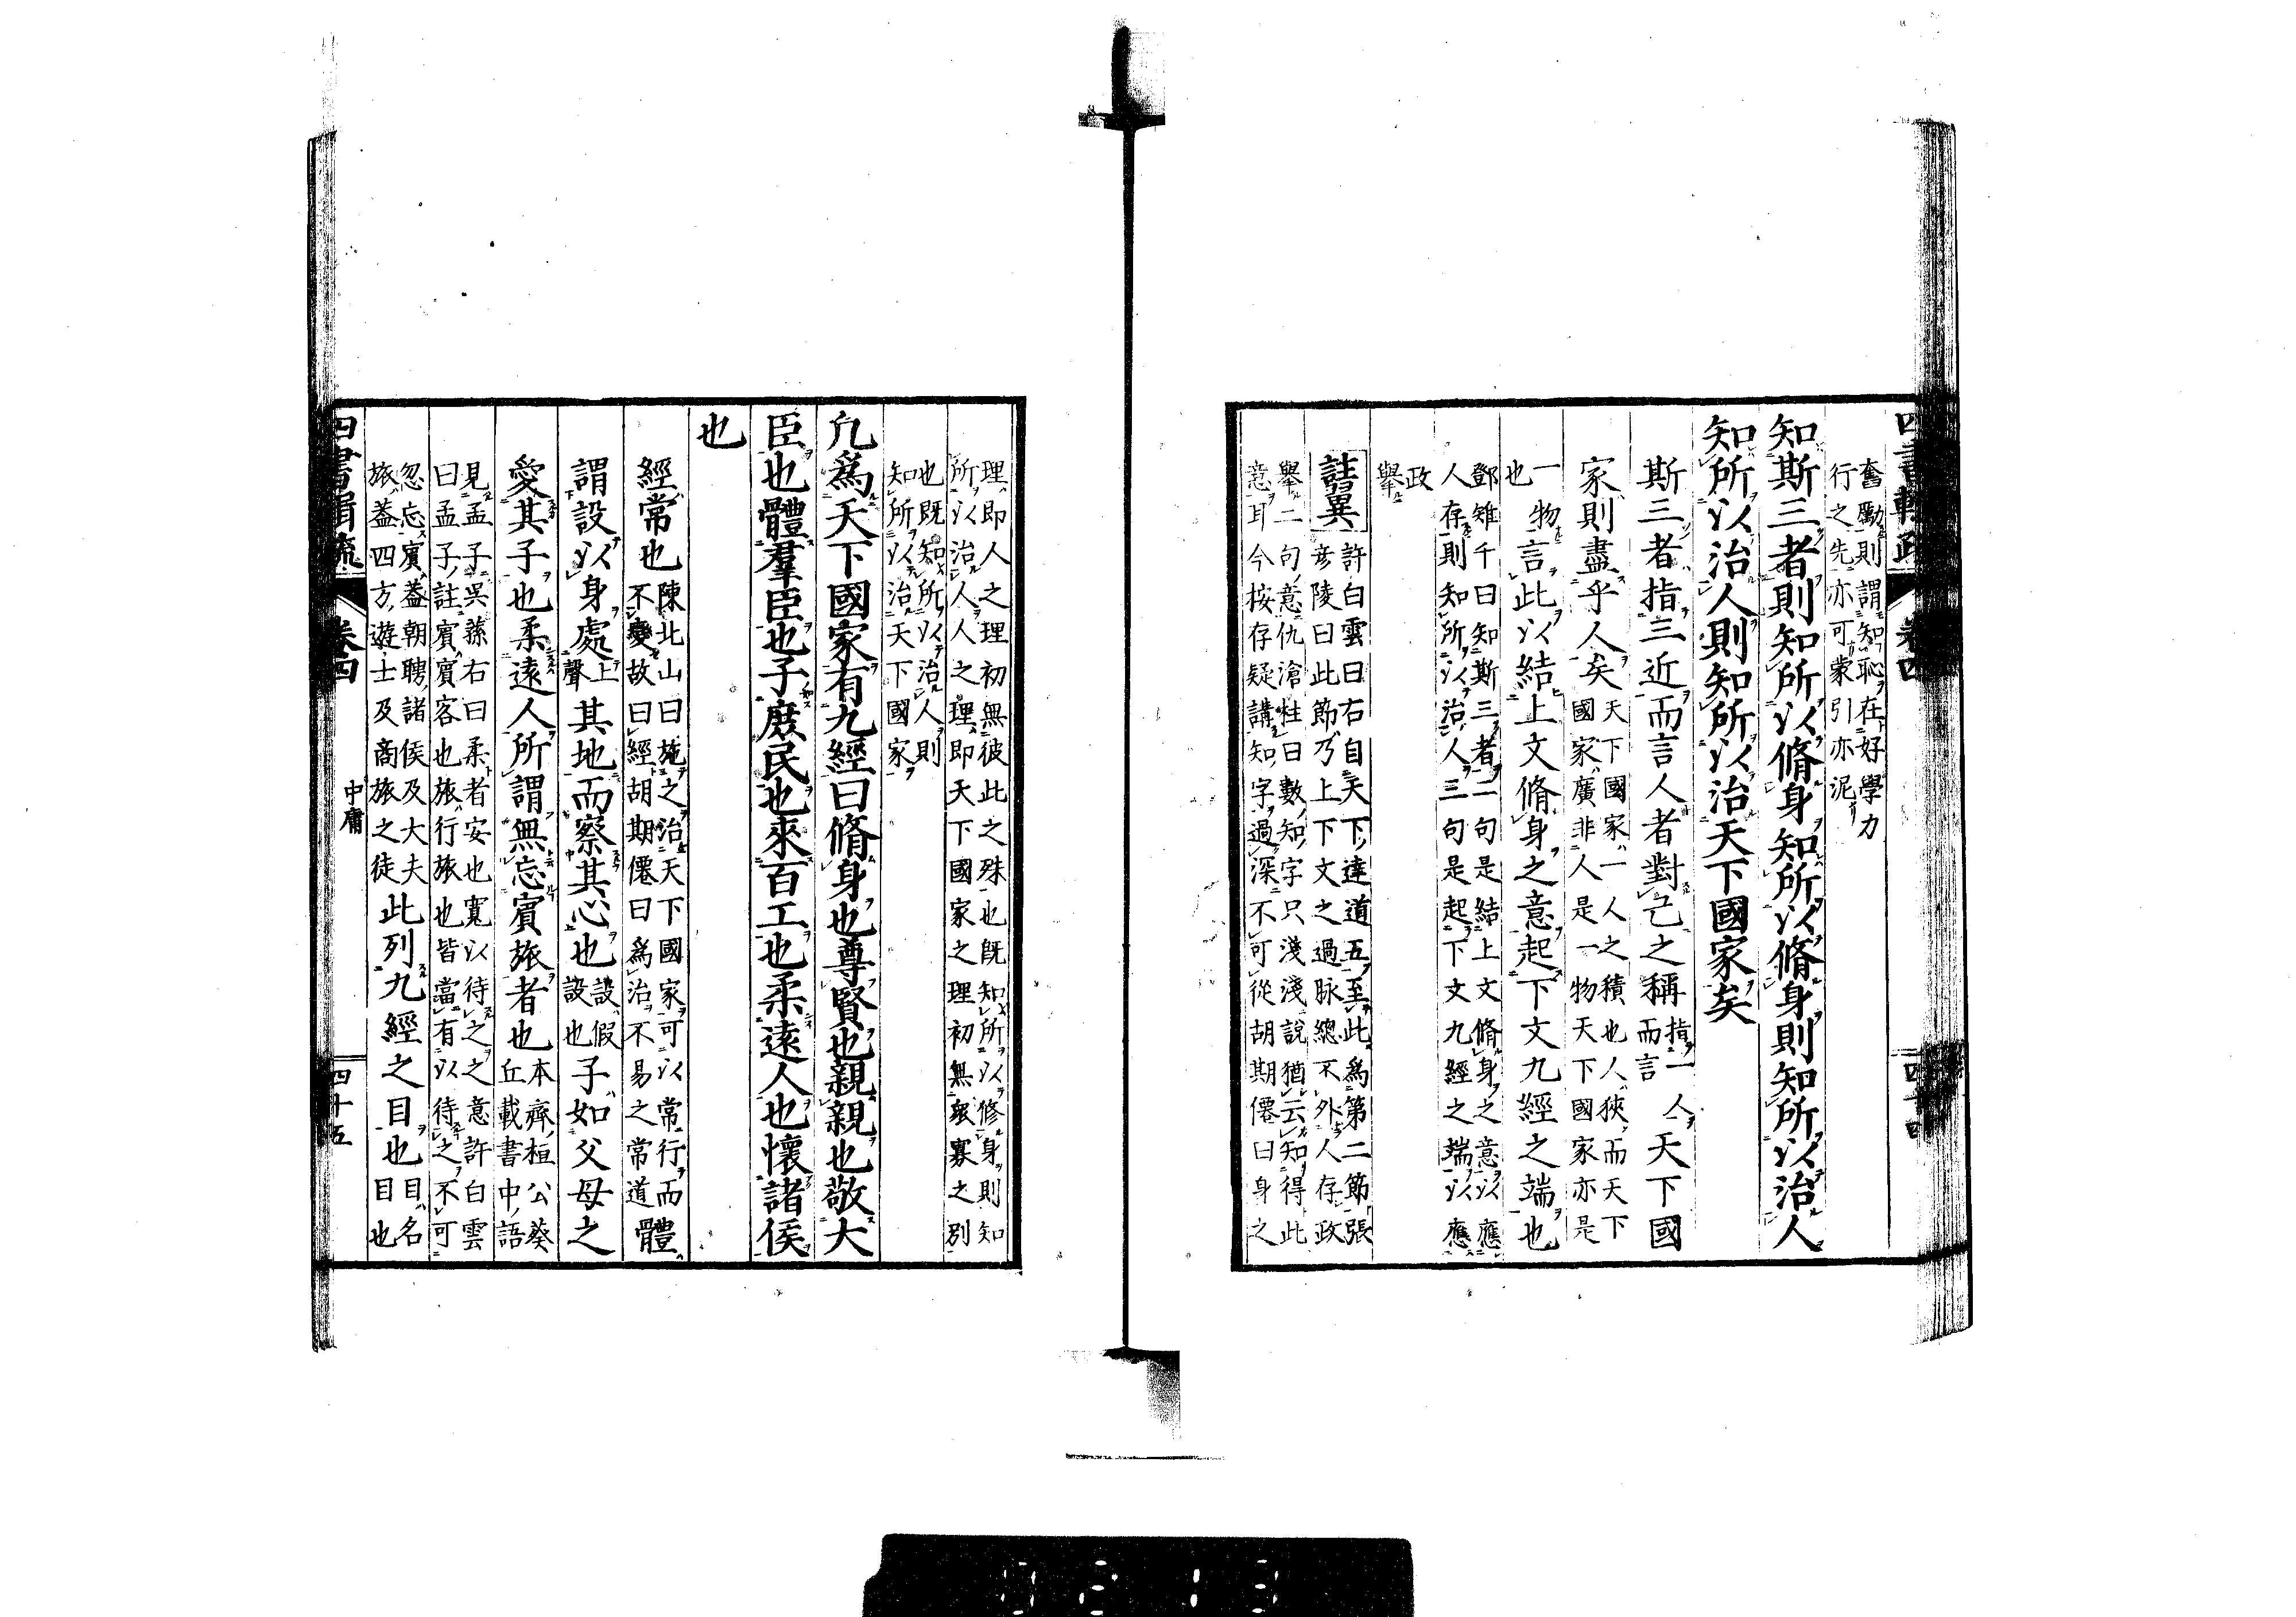 四書輯疏 卷四 四十四
奮勵則謂知恥在好學力
行之先亦可蒙引亦泥
知斯三者則知所以脩身知所以脩身則知所以治人
知所以治人則知所以治天下國家矣
斯三者指三近而言人者對己之稱指一人而言天下國
家則盡乎人矣天下國家一人之積也人狹而天下
國家廣非人是一物天下國家亦是
一物
也
言此以結上文脩身之意起下文九經之端也
鄧雉千曰知斯三者二句是結上文脩身之意以應
人存則知所以治人三句是起下文九經之端以應
政
舉
註異許白雲曰右自天下達道五至此為第二節張
彥陵曰此節乃上下文之過脉總不外人存政
舉二句意仇滄柱曰數知字只淺淺說猶云知得此
意耳今按存疑講知字過深不可從胡期僊曰身之
理即人之理初無彼此之殊也既知所以修身則知
所以治人人之理即天下國家之理初無衆寡之別
也既知所以治人則
知所以治天下國家
凢爲天下國家有九經曰脩身也尊賢也親親也敬大
臣也體羣臣也子庶民也來百工也柔遠人也懷諸侯
也
經常也陳北山曰施之治天下國家可以常行而
不變故曰經胡期僊曰爲治不易之常道體
謂設以身處上聲其地而察其心也設假設也子如父母之
愛其子也柔遠人所謂無忘賓旅者也本齊桓公葵
丘載書中語
見孟子吳蓀右曰柔者安也寬以待之之意許白雲
曰孟子註賓賓客也旅行旅也皆當有以待之不可
忽忘賓蓋朝聘諸侯及大夫
旅蓋四方遊士及商旅之徒此列九經之目也目名
目也
四書輯疏 卷四 中庸 四十五